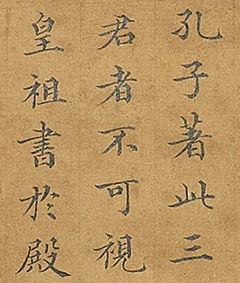 孔子著此三
君者不可視
皇祖書於殿